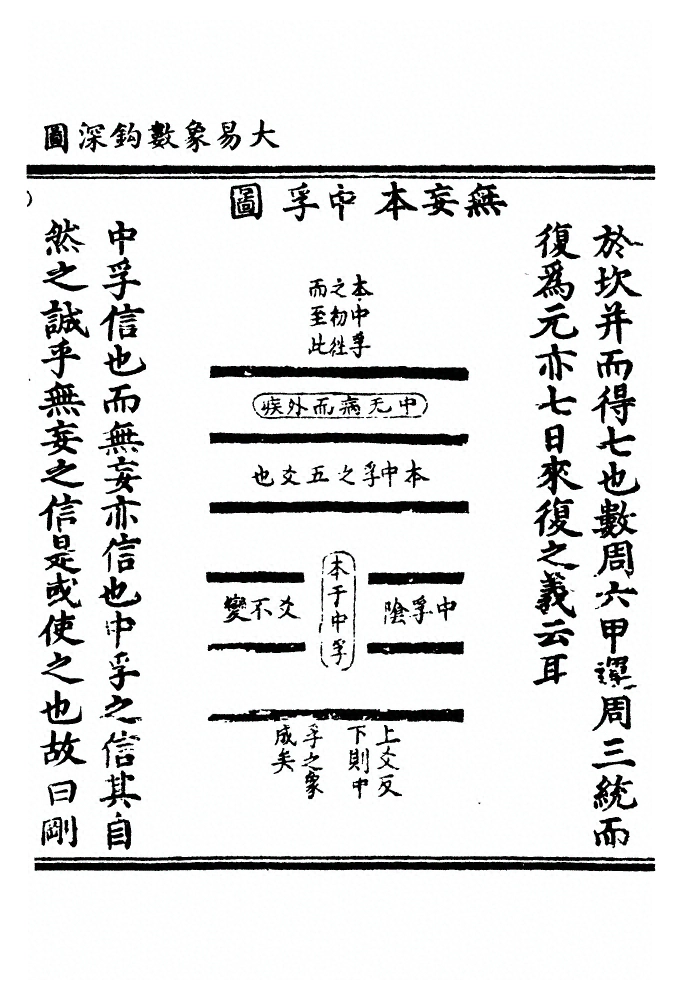 大易象數鈎深圖
於坎并而得七也數周六甲還周三統而
復爲元亦七日來復之義云耳
無妄本中孚圖
本中孚
之初往
而至此
中无病而外疾
本中孚之五爻也
中孚陰
本于中孚
爻不變
上爻反
下則中
孚之象
成矣
中孚信也而無妄亦信也中孚之信其自
然之誠乎無妄之信是或使之也故曰剛